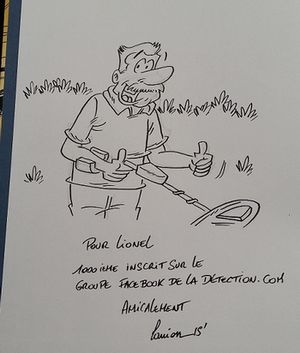 POUR LIONEL
1000IEME INSCRIT SUR LE
GROUPE FACEBOOK DE LA DÉTECTION.COM
AMICALEMENT
15'